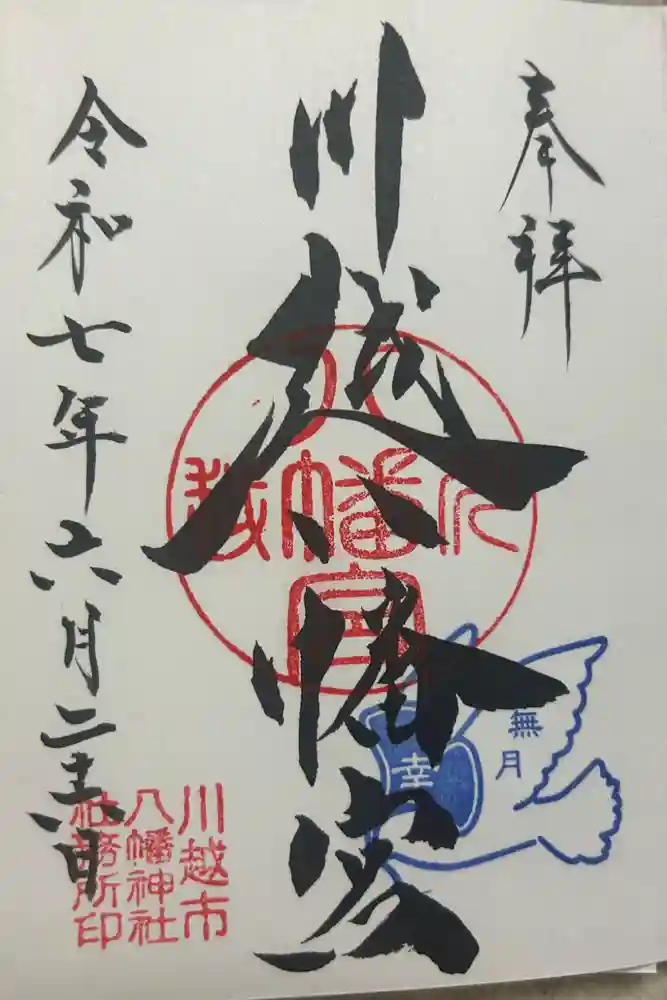 奉拝
川越八幡宮
八幡宮
川
越
無月
幸
令和七年六月二十六日
川越市
八幡神社
社務所印